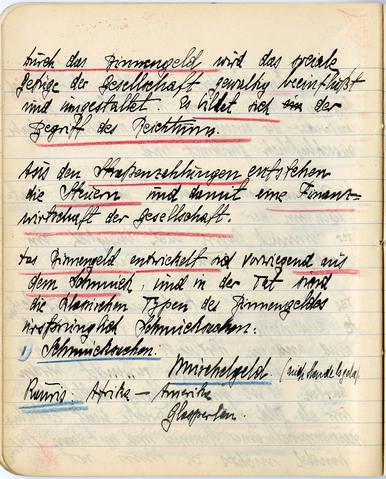 Durch das Binnengeld wird das soziale
Gefüge der Gesellschaft gewaltig beeinflußt
und umgestaltet. Es bildet sich der
Begriff des Reichtums.
Aus den Strafenzahlungen entstehen
die Steuern und damit eine Finanz=
wirtschaft der Gesellschaft.
Das Binnengeld entwickelt sich vorwiegend aus
dem Schmuck, und in der Tat sind
die klassischen Typen des Binnengeldes
ursprünglich Schmucksachen:
1) Schmucksachen:
Muschelgeld. (auch
Kauris: Afrika — Amerika
Glasperlen.